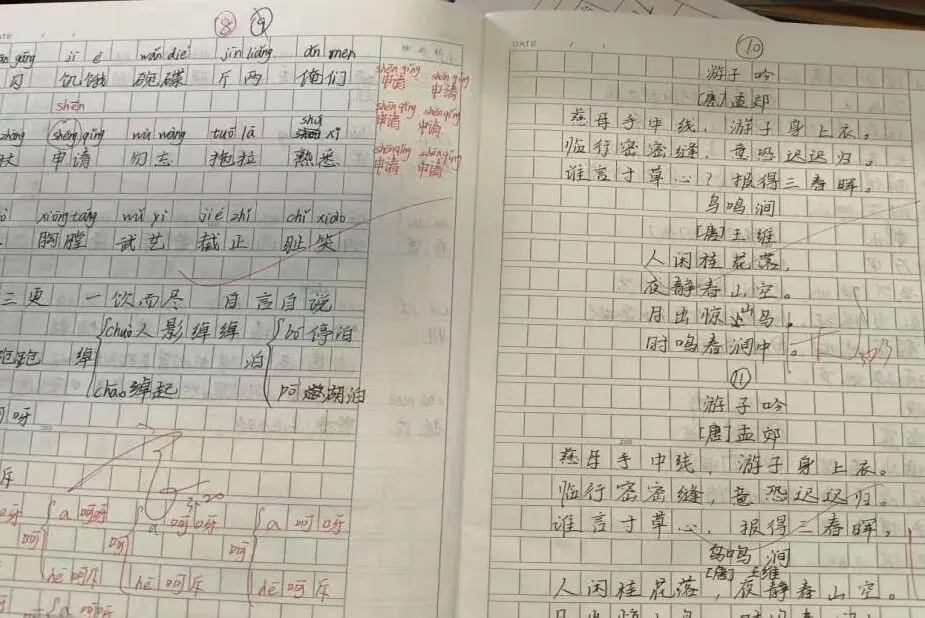 ⑧ ⑨
jī è wǎn dié jīn liǎng ǎn men
饥饿 碗碟 斤两 俺们
shēn
shēng qǐng wù wàng tuō lā shú xī
申请 勿忘 拖拉 熟悉
shēn qǐng shēn qǐng
申请 申请
shēn qǐng shēn qǐng
申请 申请
shēn qǐng shēn qǐng
申请 申请
xiōng táng wǔ yì jié zhǐ chǐ xiào
胸膛 武艺 截止 耻笑
三更 一饮而尽 自言自说
绰 chuò 人影绰绰 泊 bó 停泊
chāo 绰起 湖泊
呀
斥
呵 a 呵呀 呵 a 呵呀 呵 a 呵呀
hē 呵斥 hē 呵斥 hē 呵斥
a 呵呀
DATE
⑩
游子吟
[唐]孟郊
慈母手中线，游子身上衣。
临行密密缝，意恐迟迟归。
谁言寸草心？报得三春晖。
鸟鸣涧
[唐]王维
人闲桂花落，
夜静春山空。
月出惊山鸟，
时鸣春涧中。
⑪
游子吟
[唐]孟郊
慈母手中线，游子身上衣。
临行密密缝，意恐迟迟归。
谁言寸草心，报得三春晖。
鸟鸣涧
[唐]王维
人闲桂花落，夜静春山空。